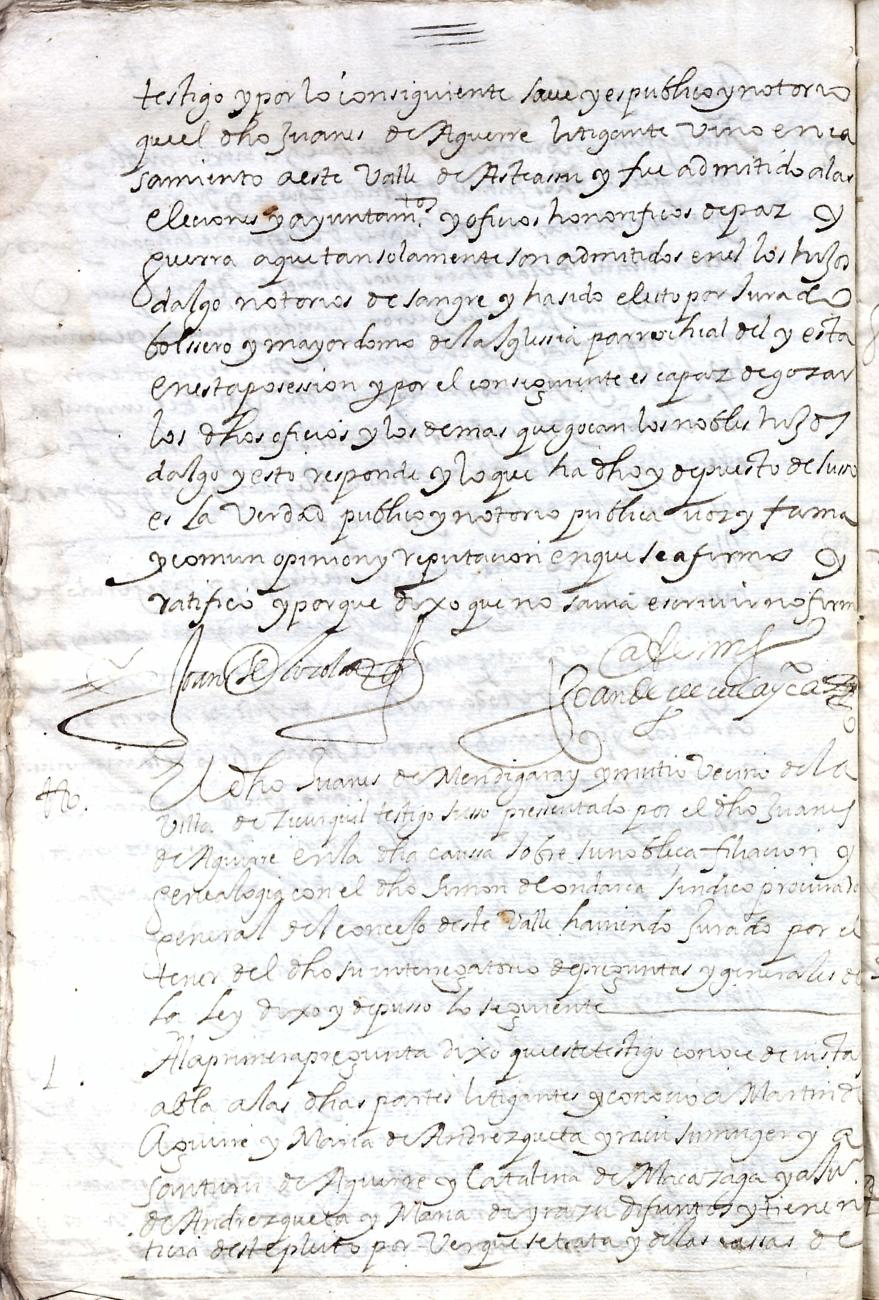 testigo y por lo consiguiente saue y es publico y notorio
que el dho Juanes de Aguerre litigante vino en ca
samiento a este Valle de Asteasu y fue admitido a las
eleciones y ayuntamtos y oficios honorificos de paz y
guerra a que tan solamente son admitidos en el los hijos
dalgo notorios de sangre y ha sido electo por Jurado
bolsero y mayordomo de la Iglesia parrochial del y esta
en esta posession y por el consiguiente es capaz de gozar
los dhos oficios y los demas que gocan los nobles hijos
dalgo y esto responde y lo que ha dho y depuesto de susso
es la Verdad publico y notorio publica voz y fama
y comun opinion y reputacion en que se afirmo y
ratifico y porque dixo que no sauia escriuir no firm
Joan de
Ante mi
Joan de
to.
El dho Juanes de Mendigaray ymutio Vecino de la
Villa de Ticurquil testigo susso presentado por el dho Juanes
de Aguirre en la dha caussa sobre su nobleca filiacion y
genealogia con el dho Simon de ondarca sindico procurado
general del concejo deste Valle hauiendo Jurado por el
tenor del dho su interrogatorio de preguntas y generales de
la Ley dixo y depusso lo seguiente
1. A la primera pregunta dixo que este testigo conoce de uista
abla a las dhas partes litigantes y conocio a Martin de
Aguirre y Maria de Andrezqueta yraçu su muger y a
Santuru de Aguirre y Catalina de Macazaga y a Ju.
de Andrezqueta y Maria de yrazu difuntos y tiene no
ticia deste pleito por Ver que se trata y de las cassas de